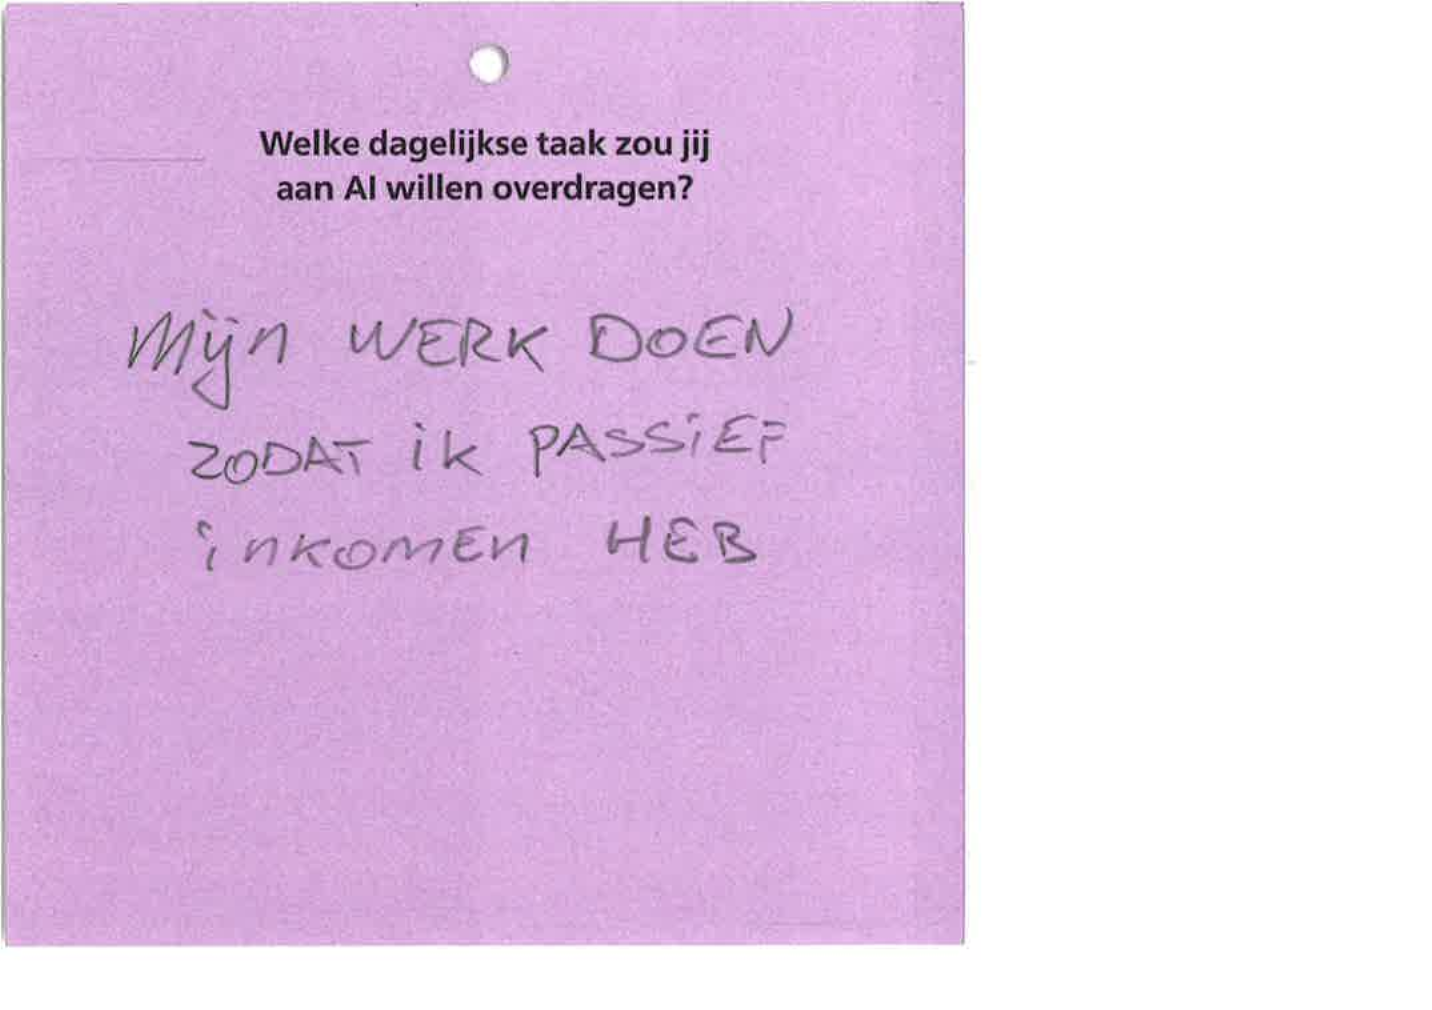 Welke dagelijkse taak zou jij
aan AI willen overdragen?
Mijn WERK DOEN
ZODAT ik PASSiEF
inkomEn HEB